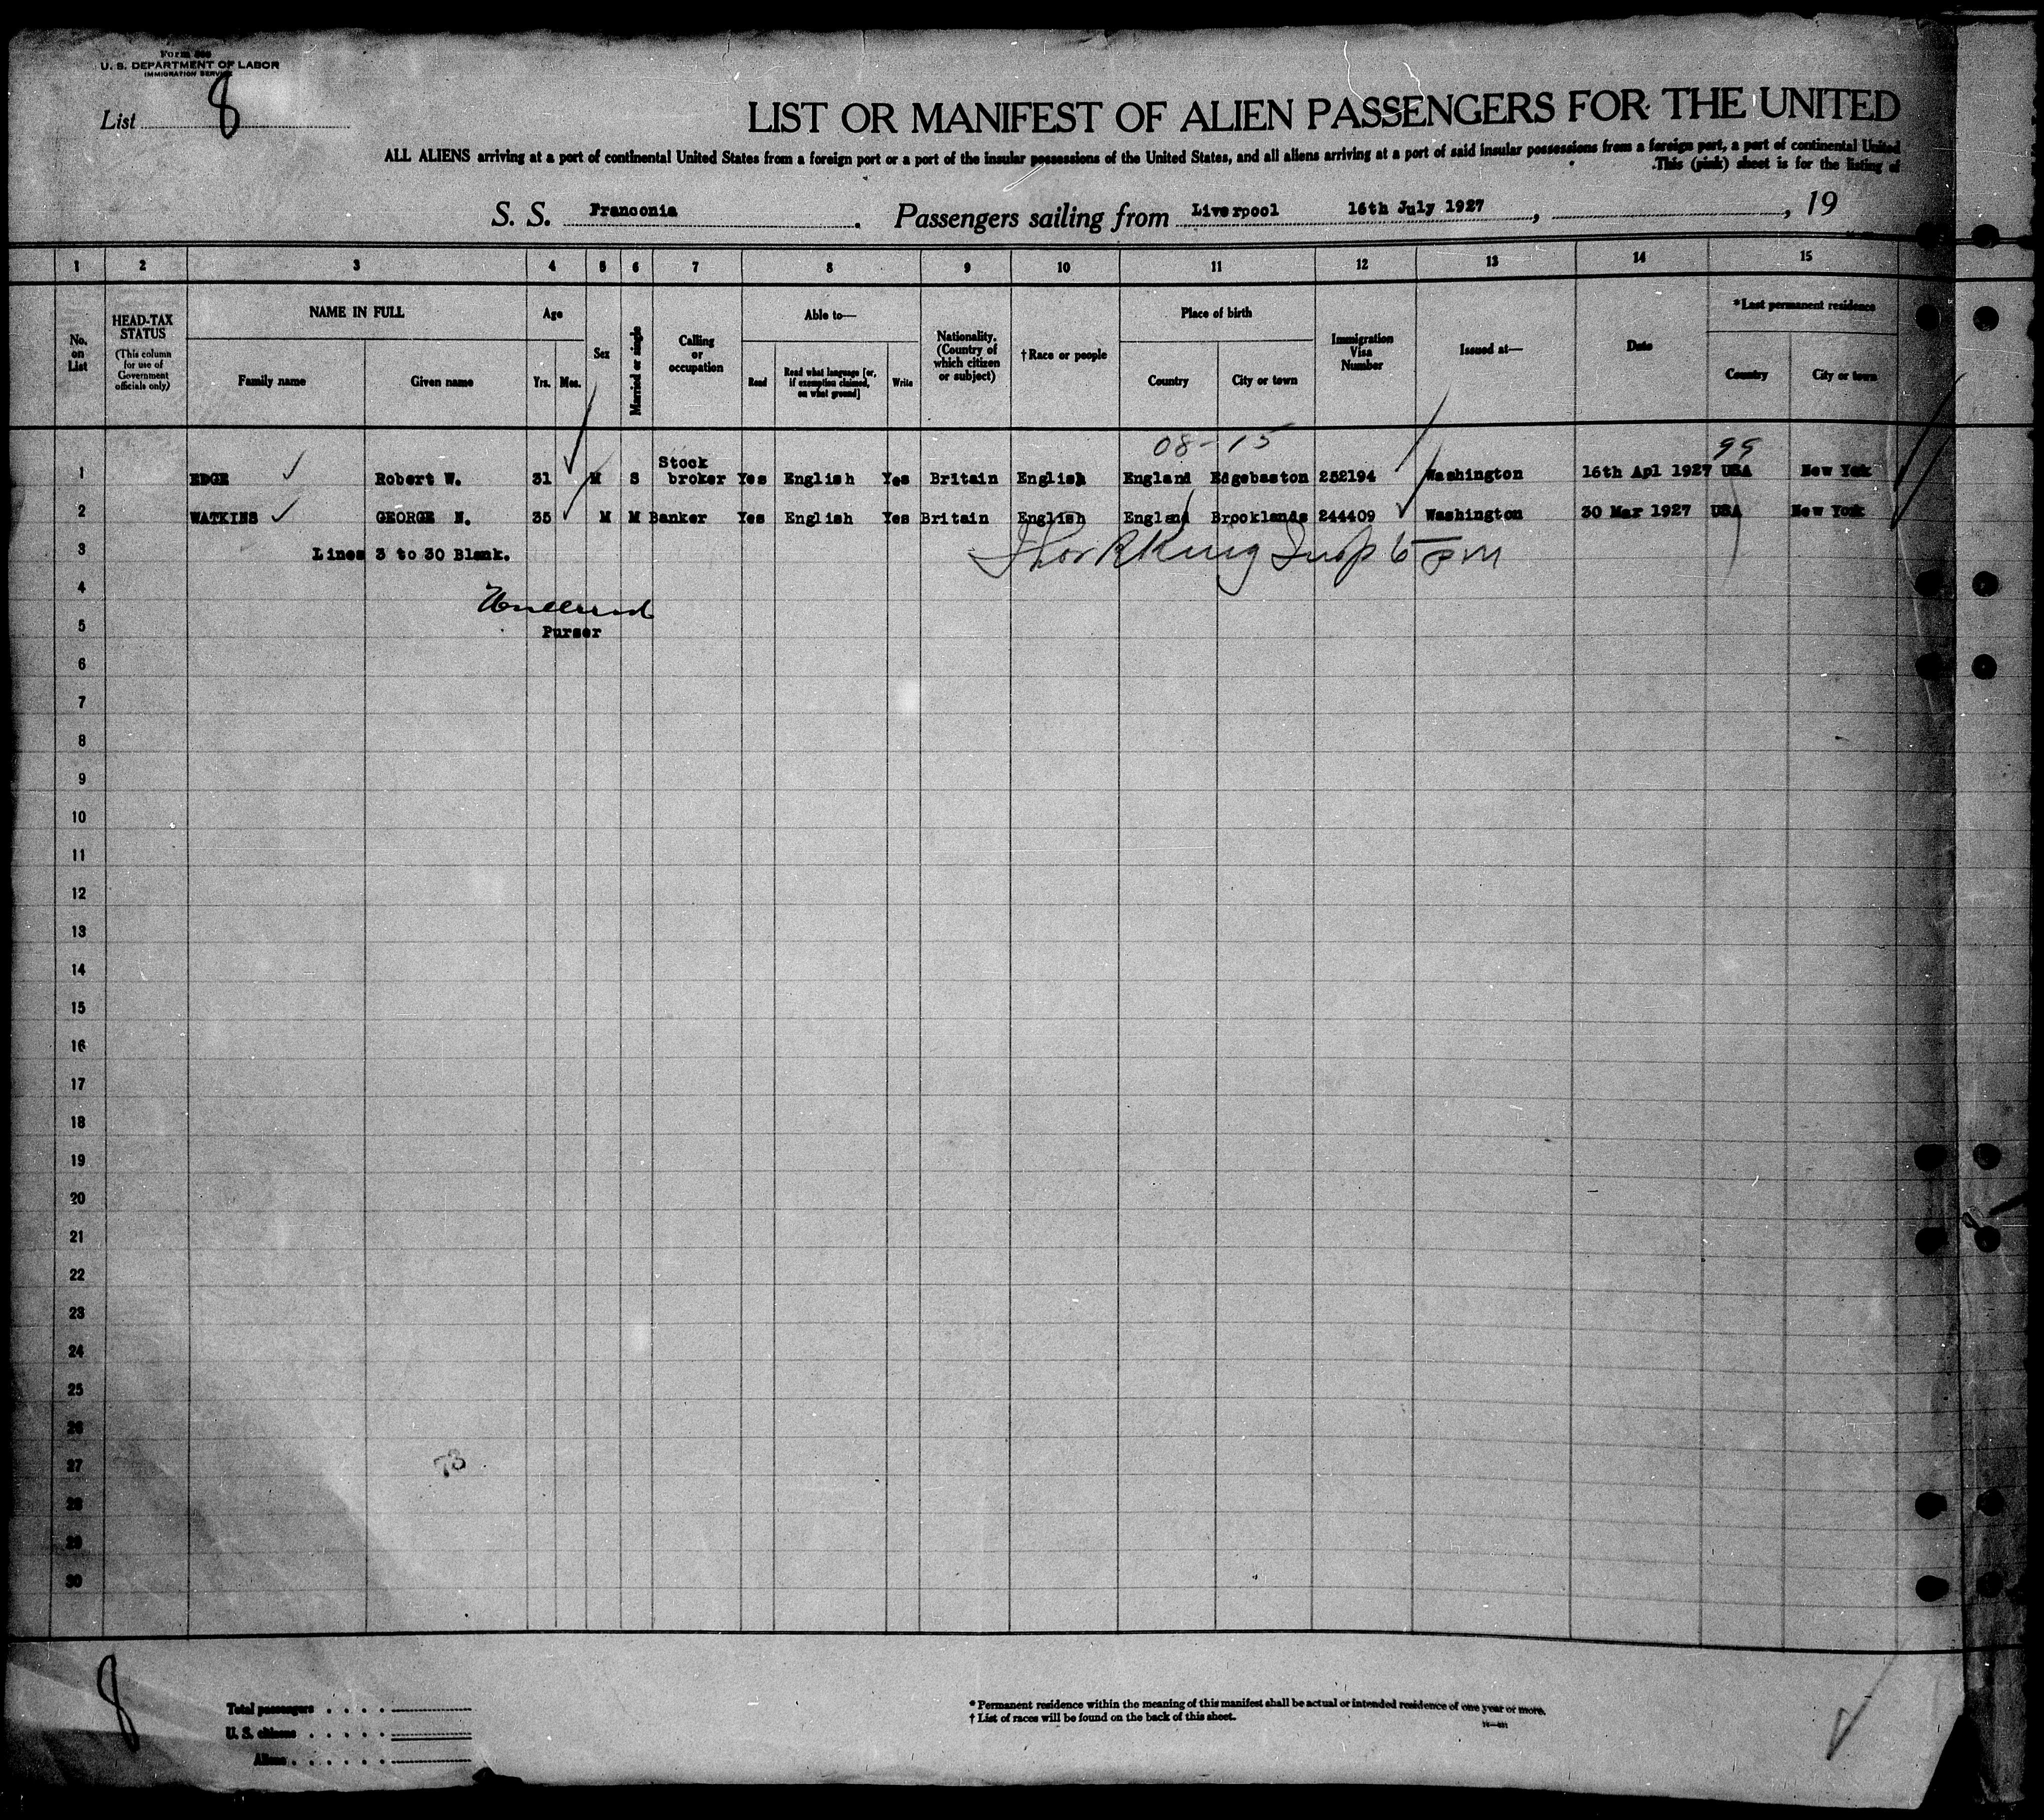 U. S. DEPARTMENT OF LABOR
IMMIGRATION SERVICE
List 8
LIST OR MANIFEST OF ALIEN PASSENGERS FOR THE UNITED
ALL ALIENS arriving at a port of continental United States from a foreign port or a port of the insular possessions of the United States, and all aliens arriving at a port of said insular possessions from a foreign port, a port of continental United
This (pink) sheet is for the listing of
S. S. Franconia. Passengers sailing from Liverpool 16th July 1927, , 19
1 2 3 4 5 6 7 8 9 10 11 12 13 14 15
No. on List
HEAD-TAX STATUS (This column for use of Government officials only)
NAME IN FULL
Family name Given name
Age
Yrs. Mos.
Sex
Married or single
Calling or occupation
Able to—
Read Read what language [or, if exemption claimed, on what ground] Write
Nationality. (Country of which citizen or subject)
†Race or people
Place of birth
Country City or town
Immigration Visa Number
Issued at—
Date
*Last permanent residence
Country City or town
08-15 99
1 EDGE Robert W. 31 M S Stock broker Yes English Yes Britain English England Edgebaston 252194 Washington 16th Apl 1927 USA New Yok
2 WATKINS GEORGE N. 35 M M Banker Yes English Yes Britain English England Brooklands 244409 Washington 30 Mar 1927 USA New York
3 Lines 3 to 30 Blank.
King Insp
4
5 Purser
6
7
8
9
10
11
12
13
14
15
16
17
18
19
20
21
22
23
24
25
26
27
73
28
29
30
8
Total passengers
U. S. citizens
Aliens
* Permanent residence within the meaning of this manifest shall be actual or intended residence of one year or more.
† List of races will be found on the back of this sheet.